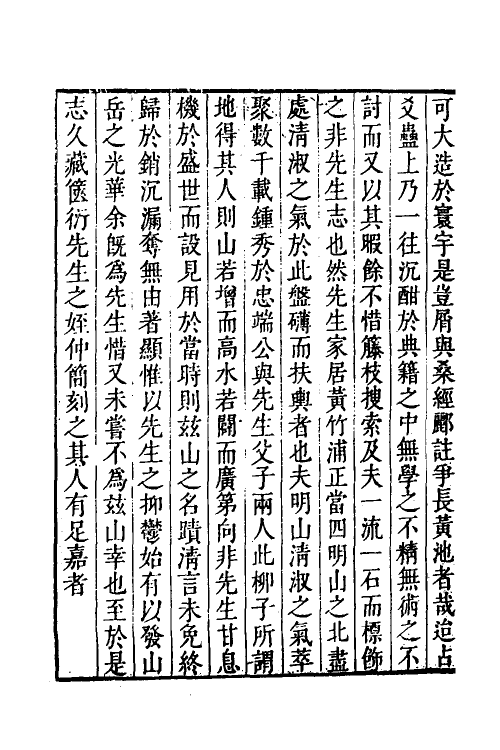 可大造於寰宇是豈屑與桑經酈註爭長黃池者哉迨占
爻蠱上乃一往沉酣於典籍之中無學之不精無術之不
討而又以其暇餘不惜籐枝搜索及夫一流一石而標飾
之非先生志也然先生家居黃竹浦正當四明山之北盡
處清淑之氣於此盤礴而扶輿者也夫明山清淑之氣萃
聚數千載鍾秀於忠端公與先生父子兩人此柳子所謂
地得其人則山若增而高水若闢而廣第向非先生甘息
機於盛世而設見用於當時則玆山之名蹟清言未免終
歸於銷沉漏奪無由著顯惟以先生之抑鬱始有以發山
岳之光華余旣爲先生惜又未嘗不爲玆山幸也至於是
志久藏篋衍先生之姪仲簡刻之其人有足嘉者